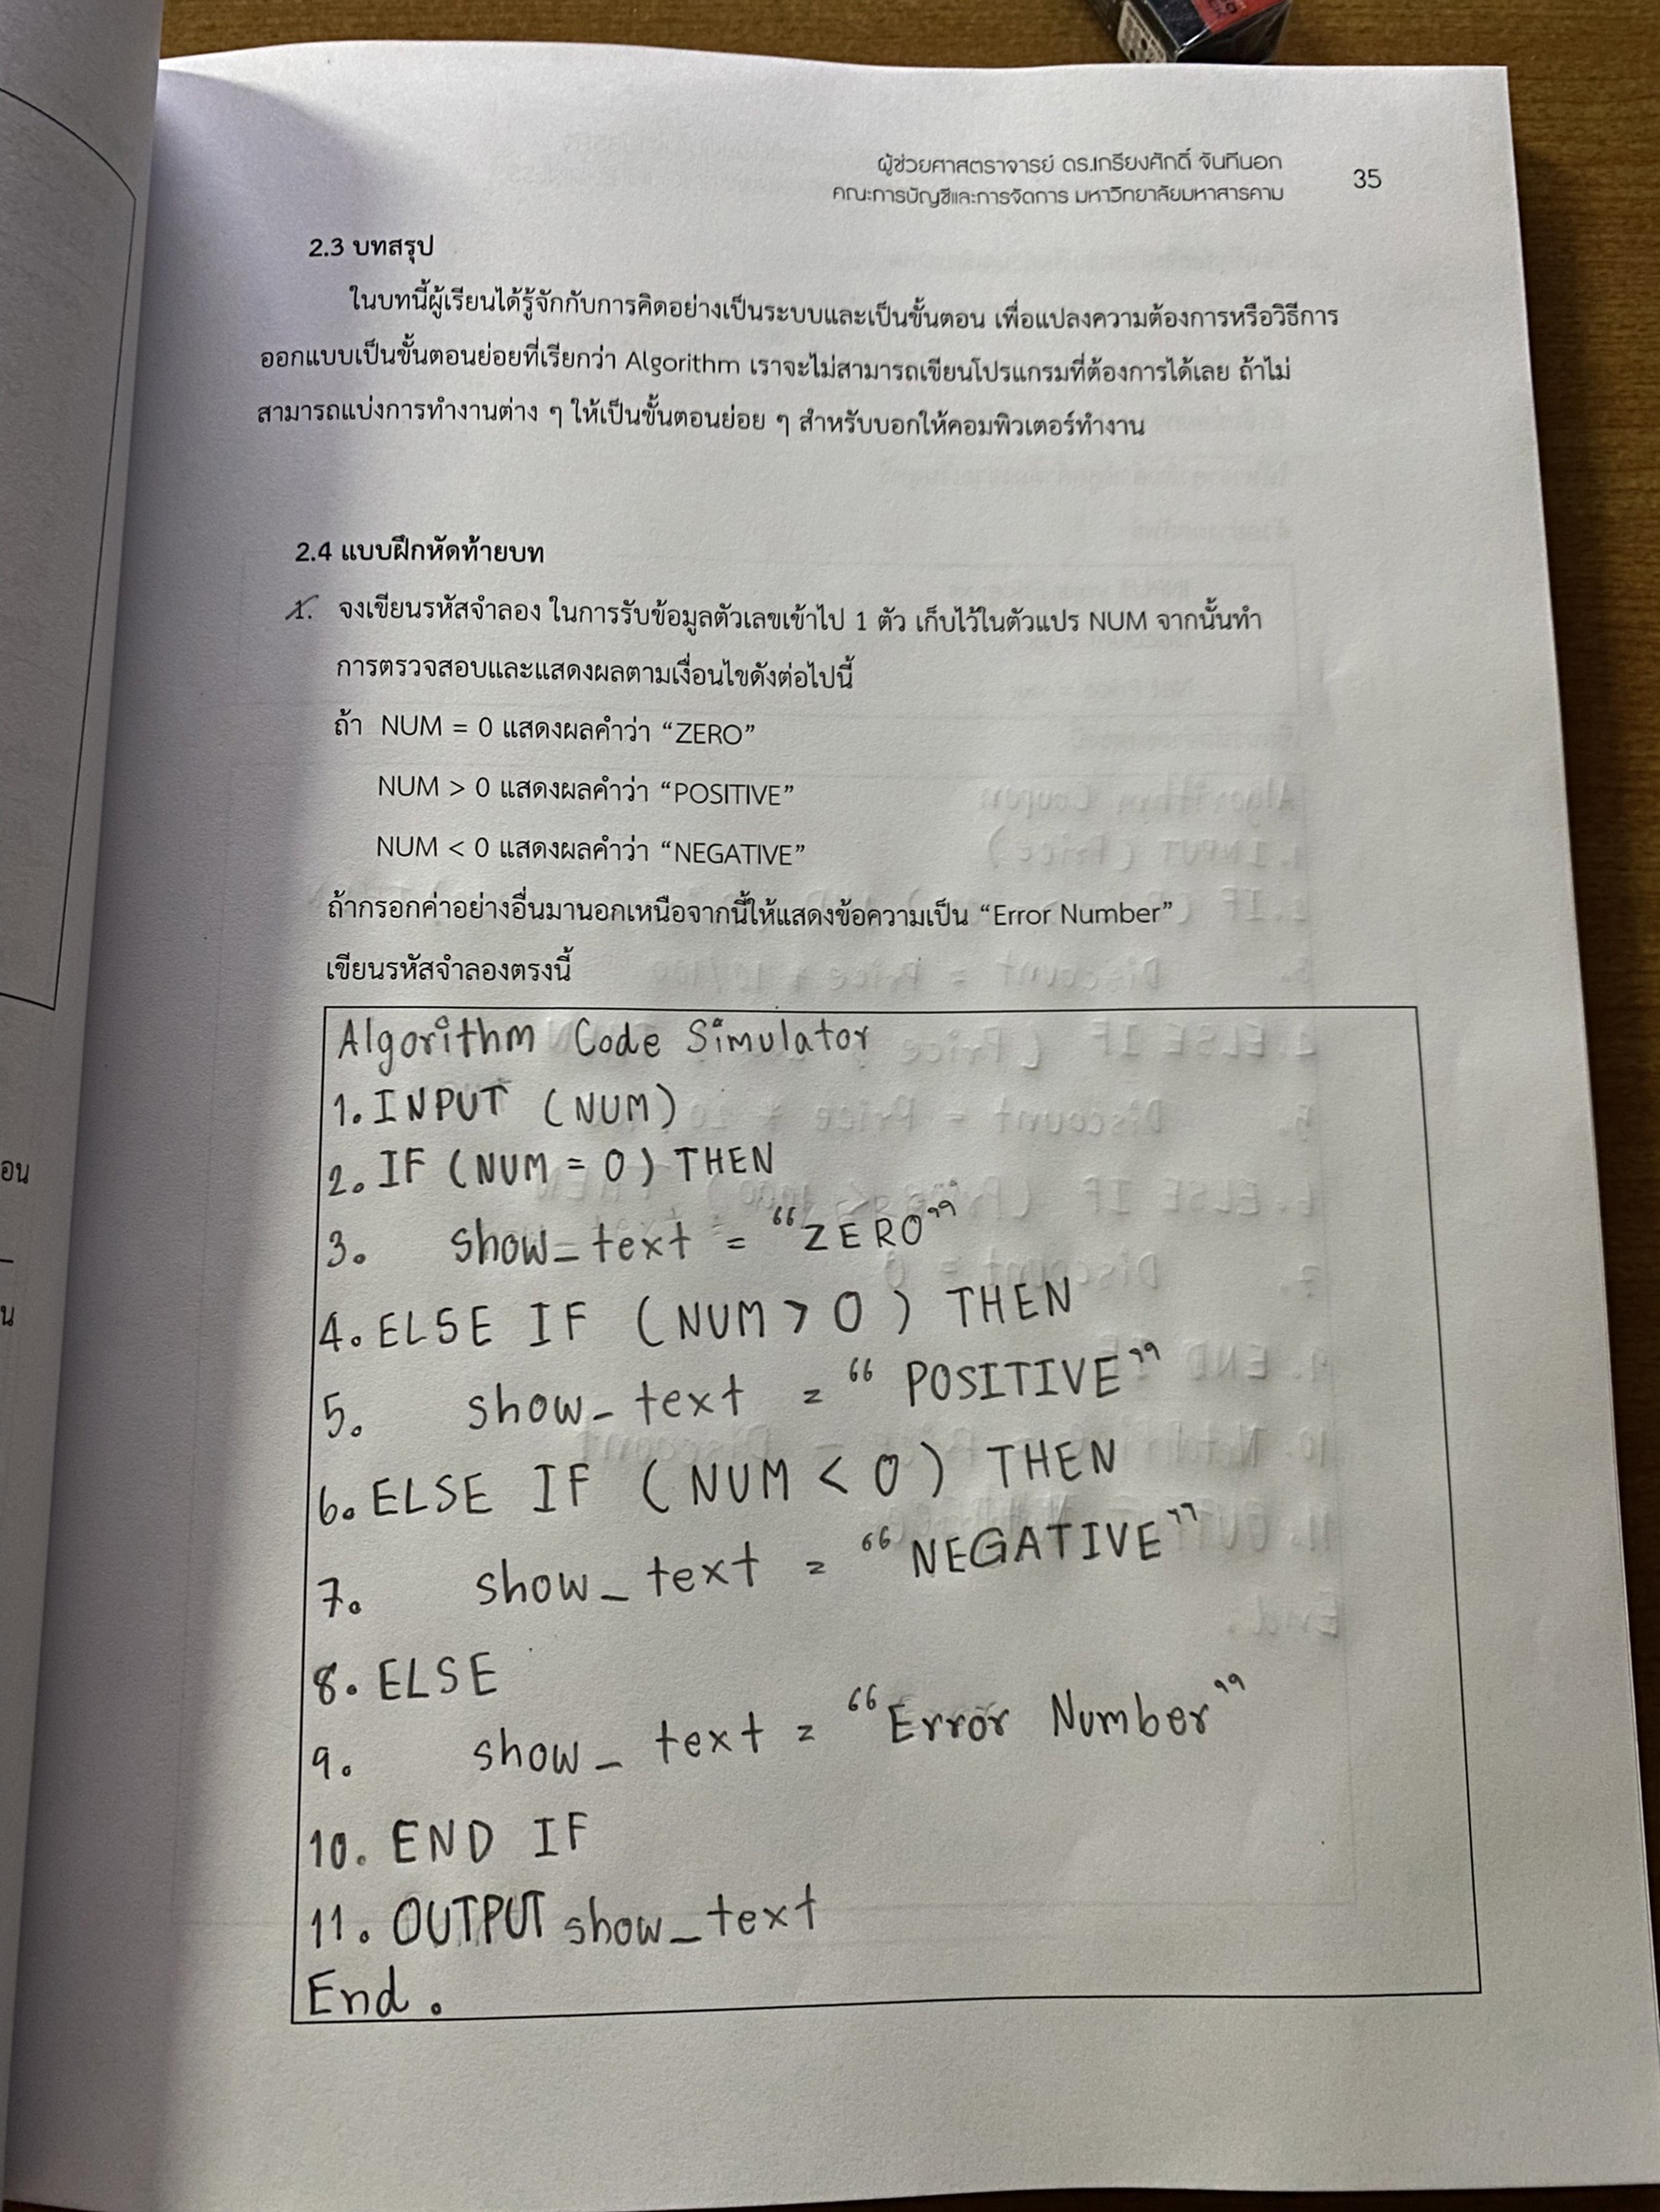 ผู้ช่วยศาสตราจารย์ ดร.เกรียงศักดิ์ จันทีนอก
คณะการบัญชีและการจัดการ มหาวิทยาลัยมหาสารคาม
35
2.3 บทสรุป
ในบทนี้ผู้เรียนได้รู้จักกับการคิดอย่างเป็นระบบและเป็นขั้นตอน เพื่อแปลงความต้องการหรือวิธีการ
ออกแบบเป็นขั้นตอนย่อยที่เรียกว่า Algorithm เราจะไม่สามารถเขียนโปรแกรมที่ต้องการได้เลย ถ้าไม่
สามารถแบ่งการทำงานต่าง ๆ ให้เป็นขั้นตอนย่อย ๆ สำหรับบอกให้คอมพิวเตอร์ทำงาน
2.4 แบบฝึกหัดท้ายบท
1. จงเขียนรหัสจำลอง ในการรับข้อมูลตัวเลขเข้าไป 1 ตัว เก็บไว้ในตัวแปร NUM จากนั้นทำ
การตรวจสอบและแสดงผลตามเงื่อนไขดังต่อไปนี้
ถ้า NUM = 0 แสดงผลคำว่า “ZERO”
NUM > 0 แสดงผลคำว่า “POSITIVE”
NUM < 0 แสดงผลคำว่า “NEGATIVE”
ถ้ากรอกค่าอย่างอื่นมานอกเหนือจากนี้ให้แสดงข้อความเป็น “Error Number”
เขียนรหัสจำลองตรงนี้
Algorithm Code Simulator
1. INPUT (NUM)
2. IF (NUM = 0) THEN
3. show_text = “ZERO”
4. ELSE IF (NUM > 0) THEN
5. show_text = “POSITIVE”
6. ELSE IF (NUM < 0) THEN
7. show_text = “NEGATIVE”
8. ELSE
9. show_text = “Error Number”
10. END IF
11. OUTPUT show_text
End.
อน
น